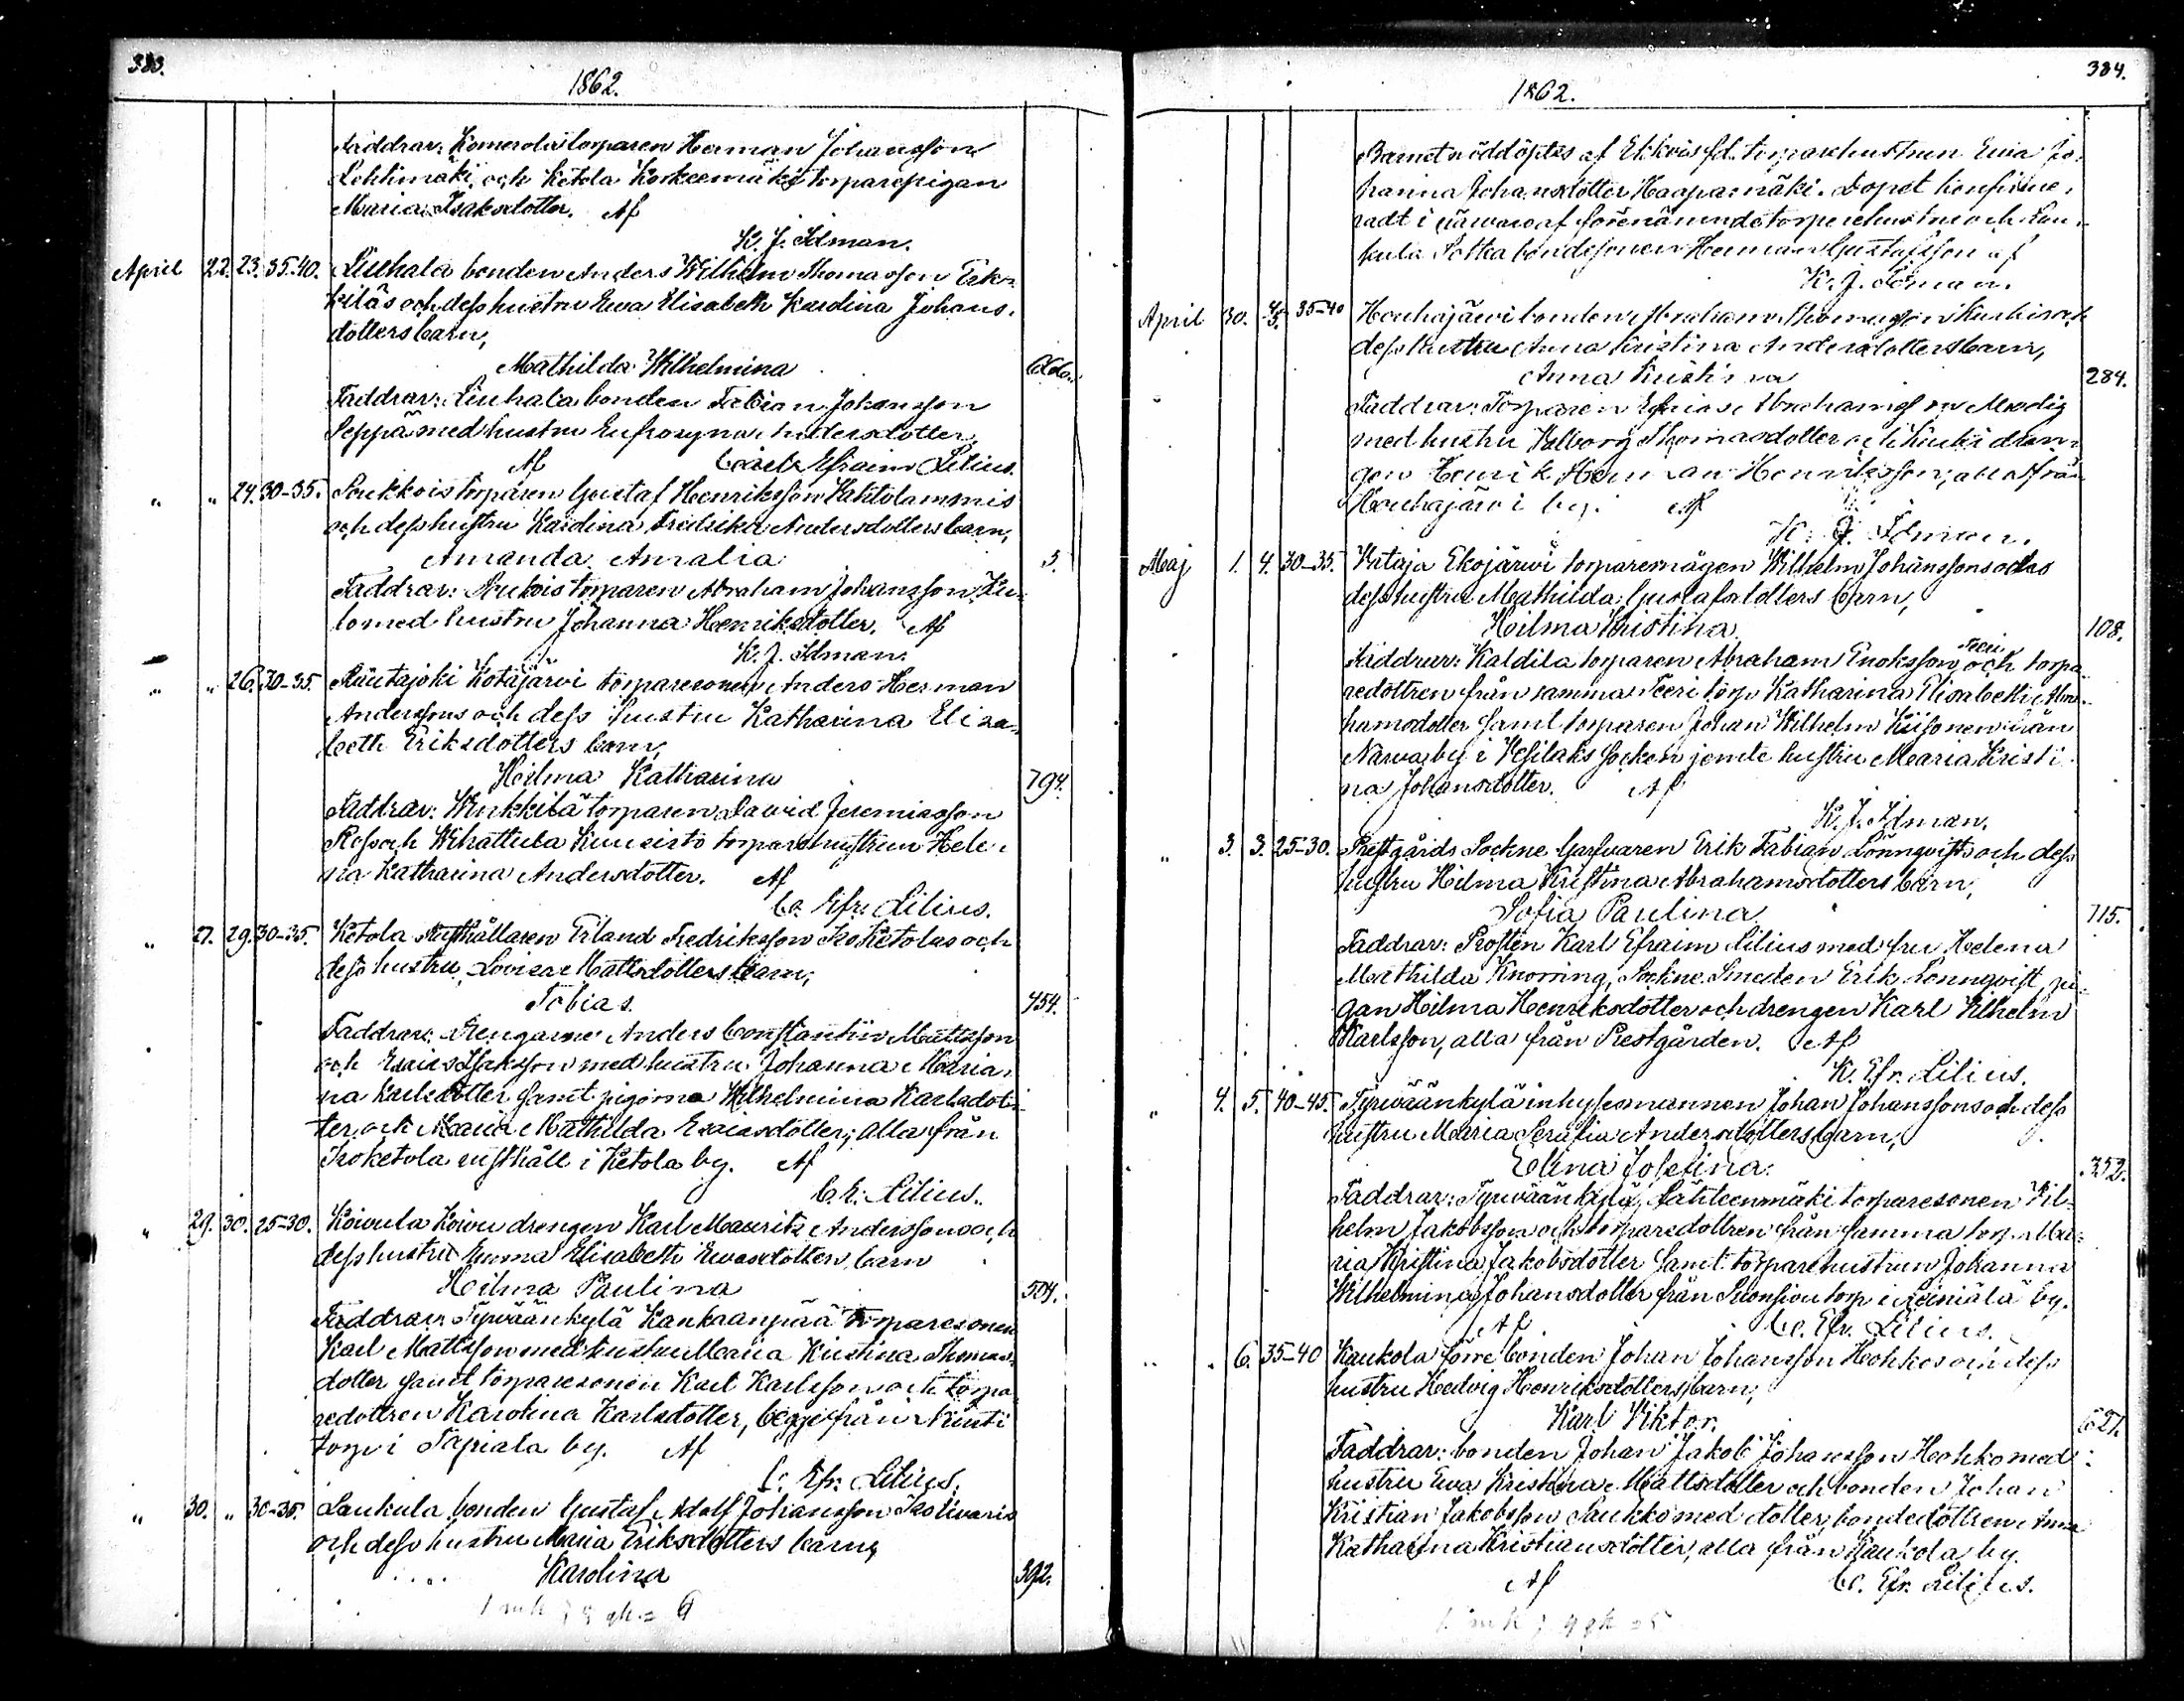 383.
1862.
Faddrar: Komerola torparen Herman Johansson
Lehtimäki, och Ketola Korkeemäki torparepigan
Maria Isaksdotter. Af
K. J. Idman.
April 22. 23. 35-40. Liuhala bonden Anders Wilhelm Thomasson Erk-
kiläs och dess hustru Ewa Elisabeth Karolina Johans-
dotters barn,
Mathilda Wilhelmina
Faddrar: Liuhala bonden Fabian Johansson
Seppä med hustru Eufrosyna Andersdotter,
Af Carl Efraim Lilius.
" " 24. 30-35. Soukkois torparen Gustaf Henriksson Vahtolammis
och dess hustru Karolina Fredrika Andersdotters barn,
Amanda Amalia 5.
Faddrar: Soukois torparen Abraham Johansson Ku-
lo med hustru Johanna Henriksdotter. Af
K. J. Idman.
" " 26. 30-35. Rautajoki Kotajärvi torparesonen Anders Herman
Anderssons och dess hustru Katharina Elisa-
beth Eriksdotters barn,
Hilma Katharina 794.
Faddrar: torparen David Jeremiasson
och Wihattula Kuusisto torparehustrun Hele-
na Katharina Andersdotter. Af
C. Efr. Lilius.
" 27. 29. 30-35. Ketola Rusthållaren Erland Fredriksson Isoketolas och
dess hustru Lovisa Mattsdotters barn,
Tobias. 454.
Faddrar: Drengarne Anders Constantin Mattsson
och Esaias Isaksson med hustru Johanna Maria-
na Karlsdotter samt pigorna Wilhelmina Karlsdot-
ter och Maria Mathilda Esaiasdotter; alla från
Isoketola rusthåll i Ketola by. Af
C. E. Lilius.
" 29. 30. 25-30. Koivula Koivu drengen Karl Mauritz Anderssons och
dess hustru Emma Elisabeth Ewasdotters barn
Hilma Paulina 504.
Faddrar: Tyrväänkylä Kankaanpää torparesonen
Karl Mattsson med hustru Maria Kristina Thomas-
dotter samt torparesonen Karl Karlsson och torpa-
redottren Karolina Karlsdotter, begge från
torp i Tapiala by. Af
C. Efr. Lilius.
" 30. " 30-35. Laukula bonden Gustaf Adolf Johansson Isotivaris
och dess hustru Maria Eriksdotters barn,
Karolina 392.
384.
1862.
Barnet nöddöptes af torparehustrun Ewa Jo-
hanna Johansdotter Haapamäki. Dopet konfirme-
radt i närvaro af förenämnde torparehustru och Lau-
kula Sotka bondesonen Herman Gustafsson af
K. J. Idman.
April 30. 4/5. 35-40 Houhajärvi bonden Abraham Thomasson och
dess hustru Anna Kristina Andersdotters barn,
Anna Kustiva 284.
Faddrar: Torparen Esaias Abrahamsson Modig
med hustru Walborg Thomasdotter och dren-
gen Henrik Herman Henriksson, alla från
Houhajärvi by. Af
K. J. Idman.
Maj 1. 4. 30-35. Kataja Ekojärvi torparemågen Wilhelm Johanssons och
dess hustru Mathilda Gustafsdotters barn,
Hilma Kristina 108.
Faddrar: Kaldila torparen Abraham Enoksson Teeri och torpa-
redottren från samma Teeri torp Katharina Elisabeth Abra-
hamsdotter samt torparen Johan Wilhelm Kiisonen från
Narva by i Vesilaks socken jemte hustru Maria Kristi-
na Johansdotter. Af
K. J. Idman.
" 3. 3. 25-30. Prestgårds Sockne Garfvaren Erik Fabian Lönnqvists och dess
hustru Hilma Kristina Abrahamsdotters barn,
Sofia Paulina 715.
Faddrar: Prosten Karl Efraim Lilius med fru Helena
Mathilda Knorring, Sockne Smeden Erik Lönnqvist, pi-
gan Hilma Henriksdotter och drengen Karl Wilhelm
Karlsson, alla från Prestgården. Af
K. Efr. Lilius.
" 4. 5. 40-45. Tyrväänkylä inhysesmannen Johan Johanssons och dess
hustru Maria Serafia Andersdotters barn,
Elina Josefina. 352.
Faddrar: Tyrväänkylä, Lähteenmäki torparesonen Wil-
helm Jakobsson och torparedottren från samma torp Ma-
ria Kristina Jakobsdotter samt torparehustrun Johanna
Wilhelmina Johansdotter från torp i by.
Af C. Efr. Lilius.
" " 6. 35-40 Kaukola före bonden Johan Johansson Hohkos och dess
hustru Hedvig Henriksdotters barn,
Karl Viktor. 627.
Faddrar: bonden Johan Jakob Johansson Hohko med
hustru Ewa Kristina Mattsdotter och bonden Johan
Kristian Jakobsson Saukko med dotter, bondedottren Anna
Katharina Kristiansdotter, alla från Kaukola by.
Af C. Efr. Lilius.